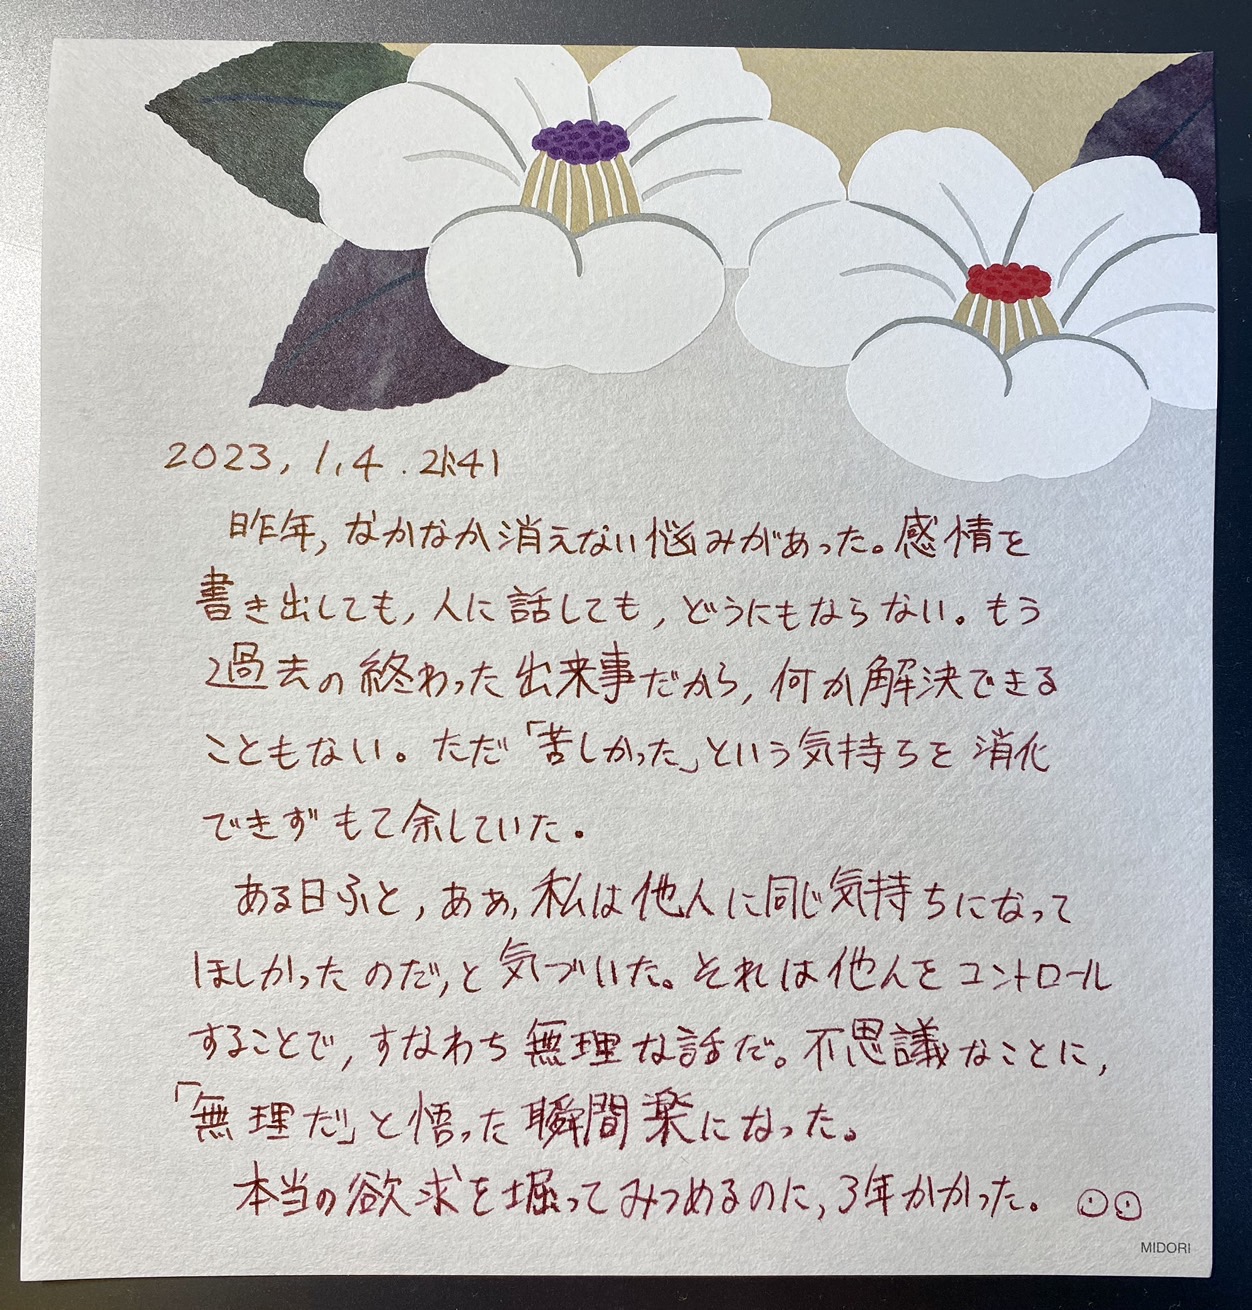 2023, 1.4. 水41
昨年, なかなか消えない悩みがあった。感情を
書き出しても, 人に話しても, どうにもならない。もう
過去の終わった出来事だから, 何か解決できる
こともない。ただ「苦しかった」という気持ちを消化
できずもて余していた。
ある日ふと, あぁ, 私は他人に同じ気持ちになって
ほしかったのだ, と気づいた。それは他人をコントロール
することで, すなわち無理な話だ。不思議なことに,
「無理だ」と悟った瞬間楽になった。
本当の欲求を掘ってみつめるのに, 3年かかった。
MIDORI